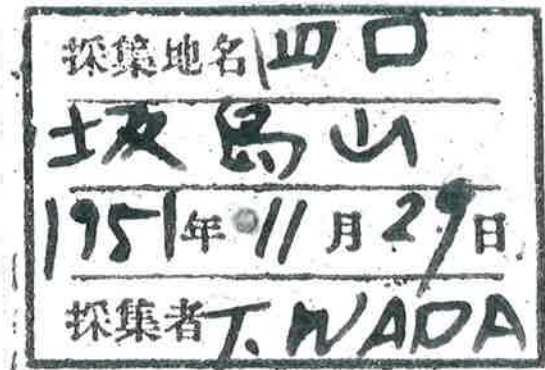 採集地名 山口
坂鳥山
1951年 11月29日
採集者 T. WADA